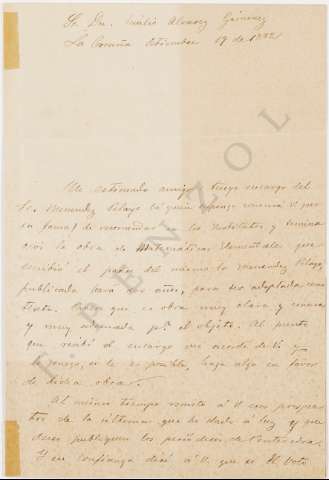 Sr. Dn. Emilio Alvarez Giménez
La Coruña Setiembre 19 de 1882
Mi estimado amigo: tengo encargo del
Sr. Menendez Pelayo (á quien supongo conocerá V. por
su fama) de recomendar á los Institutos y Semina
rios la obra de Matemáticas Elementales que
escribió el padre del mismo Sr. Menendez Pelayo,
publicada hará dos años, para ser adoptada como
texto. Creo que es obra muy clara y concisa
y muy adecuada pa. el objeto. Al punto
que recibí el encargo me acordé de V. y
le ruego, si le es posible, haga algo en favor
de dicha obra.
Al mismo tiempo remito á V. con prospec
tos de la última que he dado á luz y
publiquen los periódicos de Pontevedra.
Y en confianza diré á V. que si el voto
F. FBNZOL